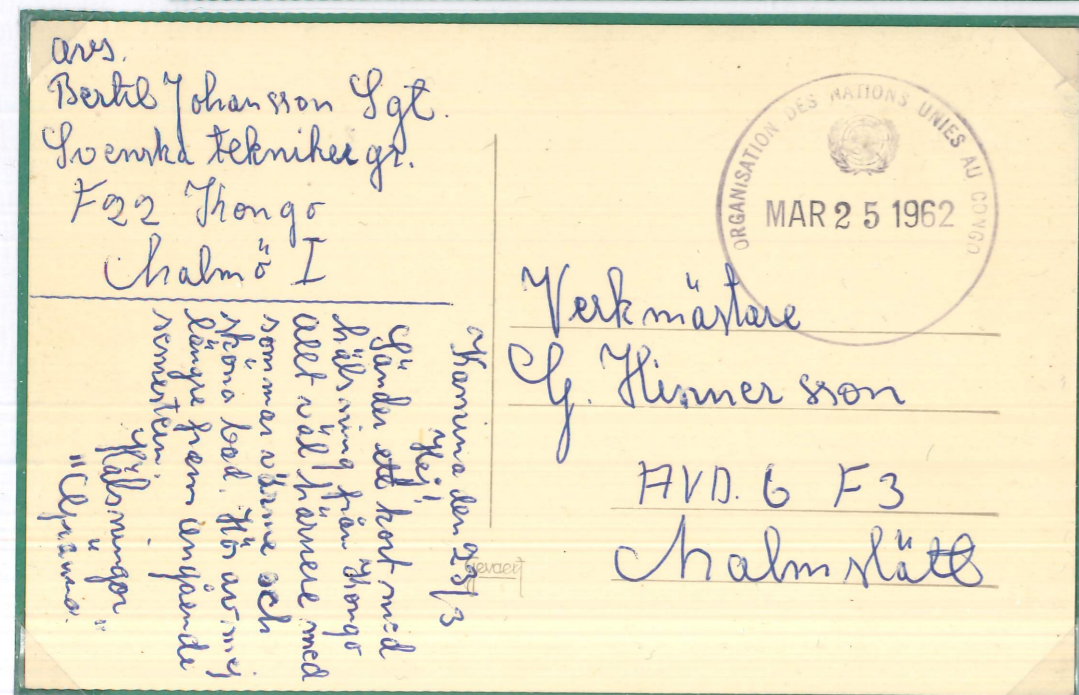 avs.
Bertil Johansson Sgt.
Svenska teknikergr.
F22 Kongo
Malmö I
ORGANISATION DES NATIONS UNIES AU CONGO
MAR 25 1962
Verkmästare
G. Hinnersson
AVD. 6 F3
Malmslätt
Kamina den 23/3
Hej!
Sänder ett kort med
hälsning från Kongo
allt väl härnere med
sommarvärme och
sköna bad. Hör av mej
längre fram angående
semestern.
Hälsningar
Gevaert